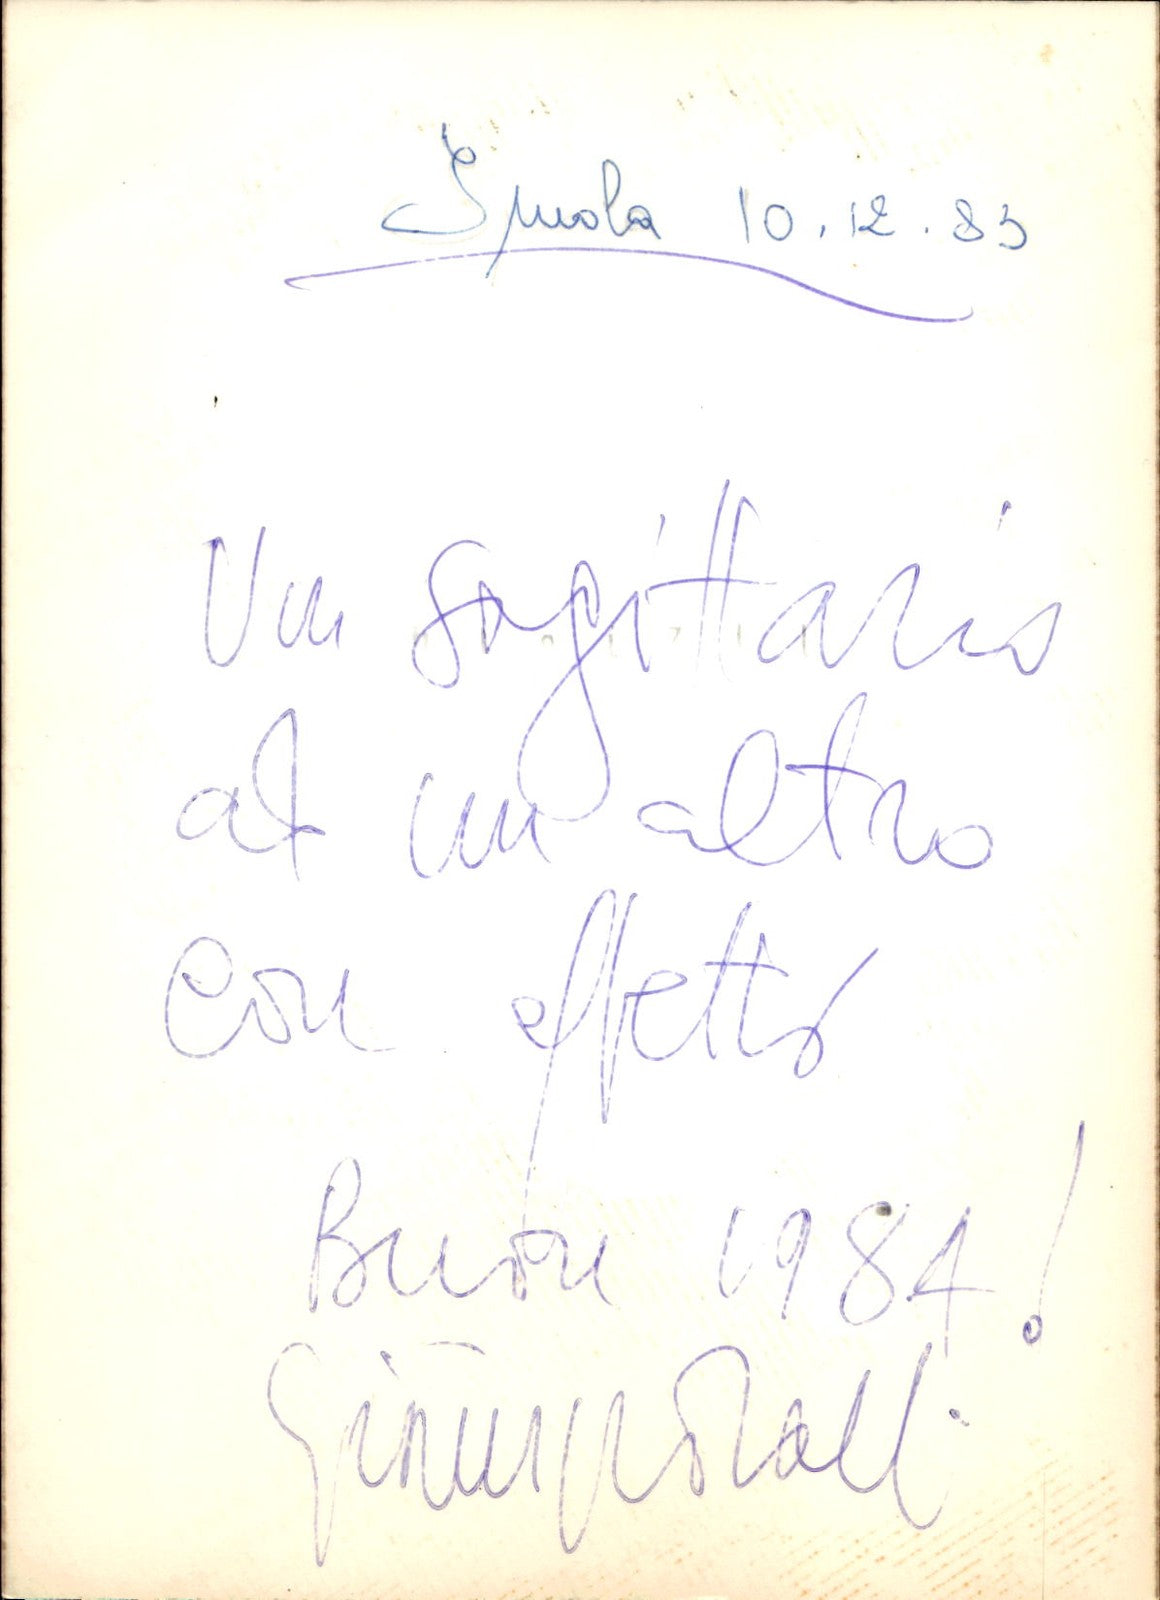 Imola 10.12.83
Un sagittario
ad un altro
con effetto
Buon 1984!